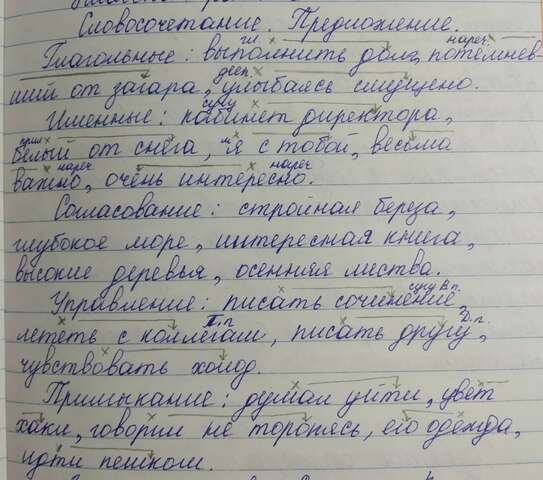 Словосочетание. Предложение.
гл. нареч.
Глагольные: выполнить долг, потемнев-
дееп.
ший от загара, улыбаясь смущено.
сущ
Именные: кабинет директора,
прил
белый от снега, я с тобой, весьма
нареч нареч
важно, очень интересно.
Согласование: стройная береза,
глубокое море, интересная книга,
высокие деревья, осенняя листва.
сущ В.п.
Управление: писать сочинение,
Т.п. Д.п.
лететь с коллегам, писать другу,
чувствовать холод.
Примыкание: думал уйти, цвет
хаки, говорим не торопясь, его одежда,
идти пешком.